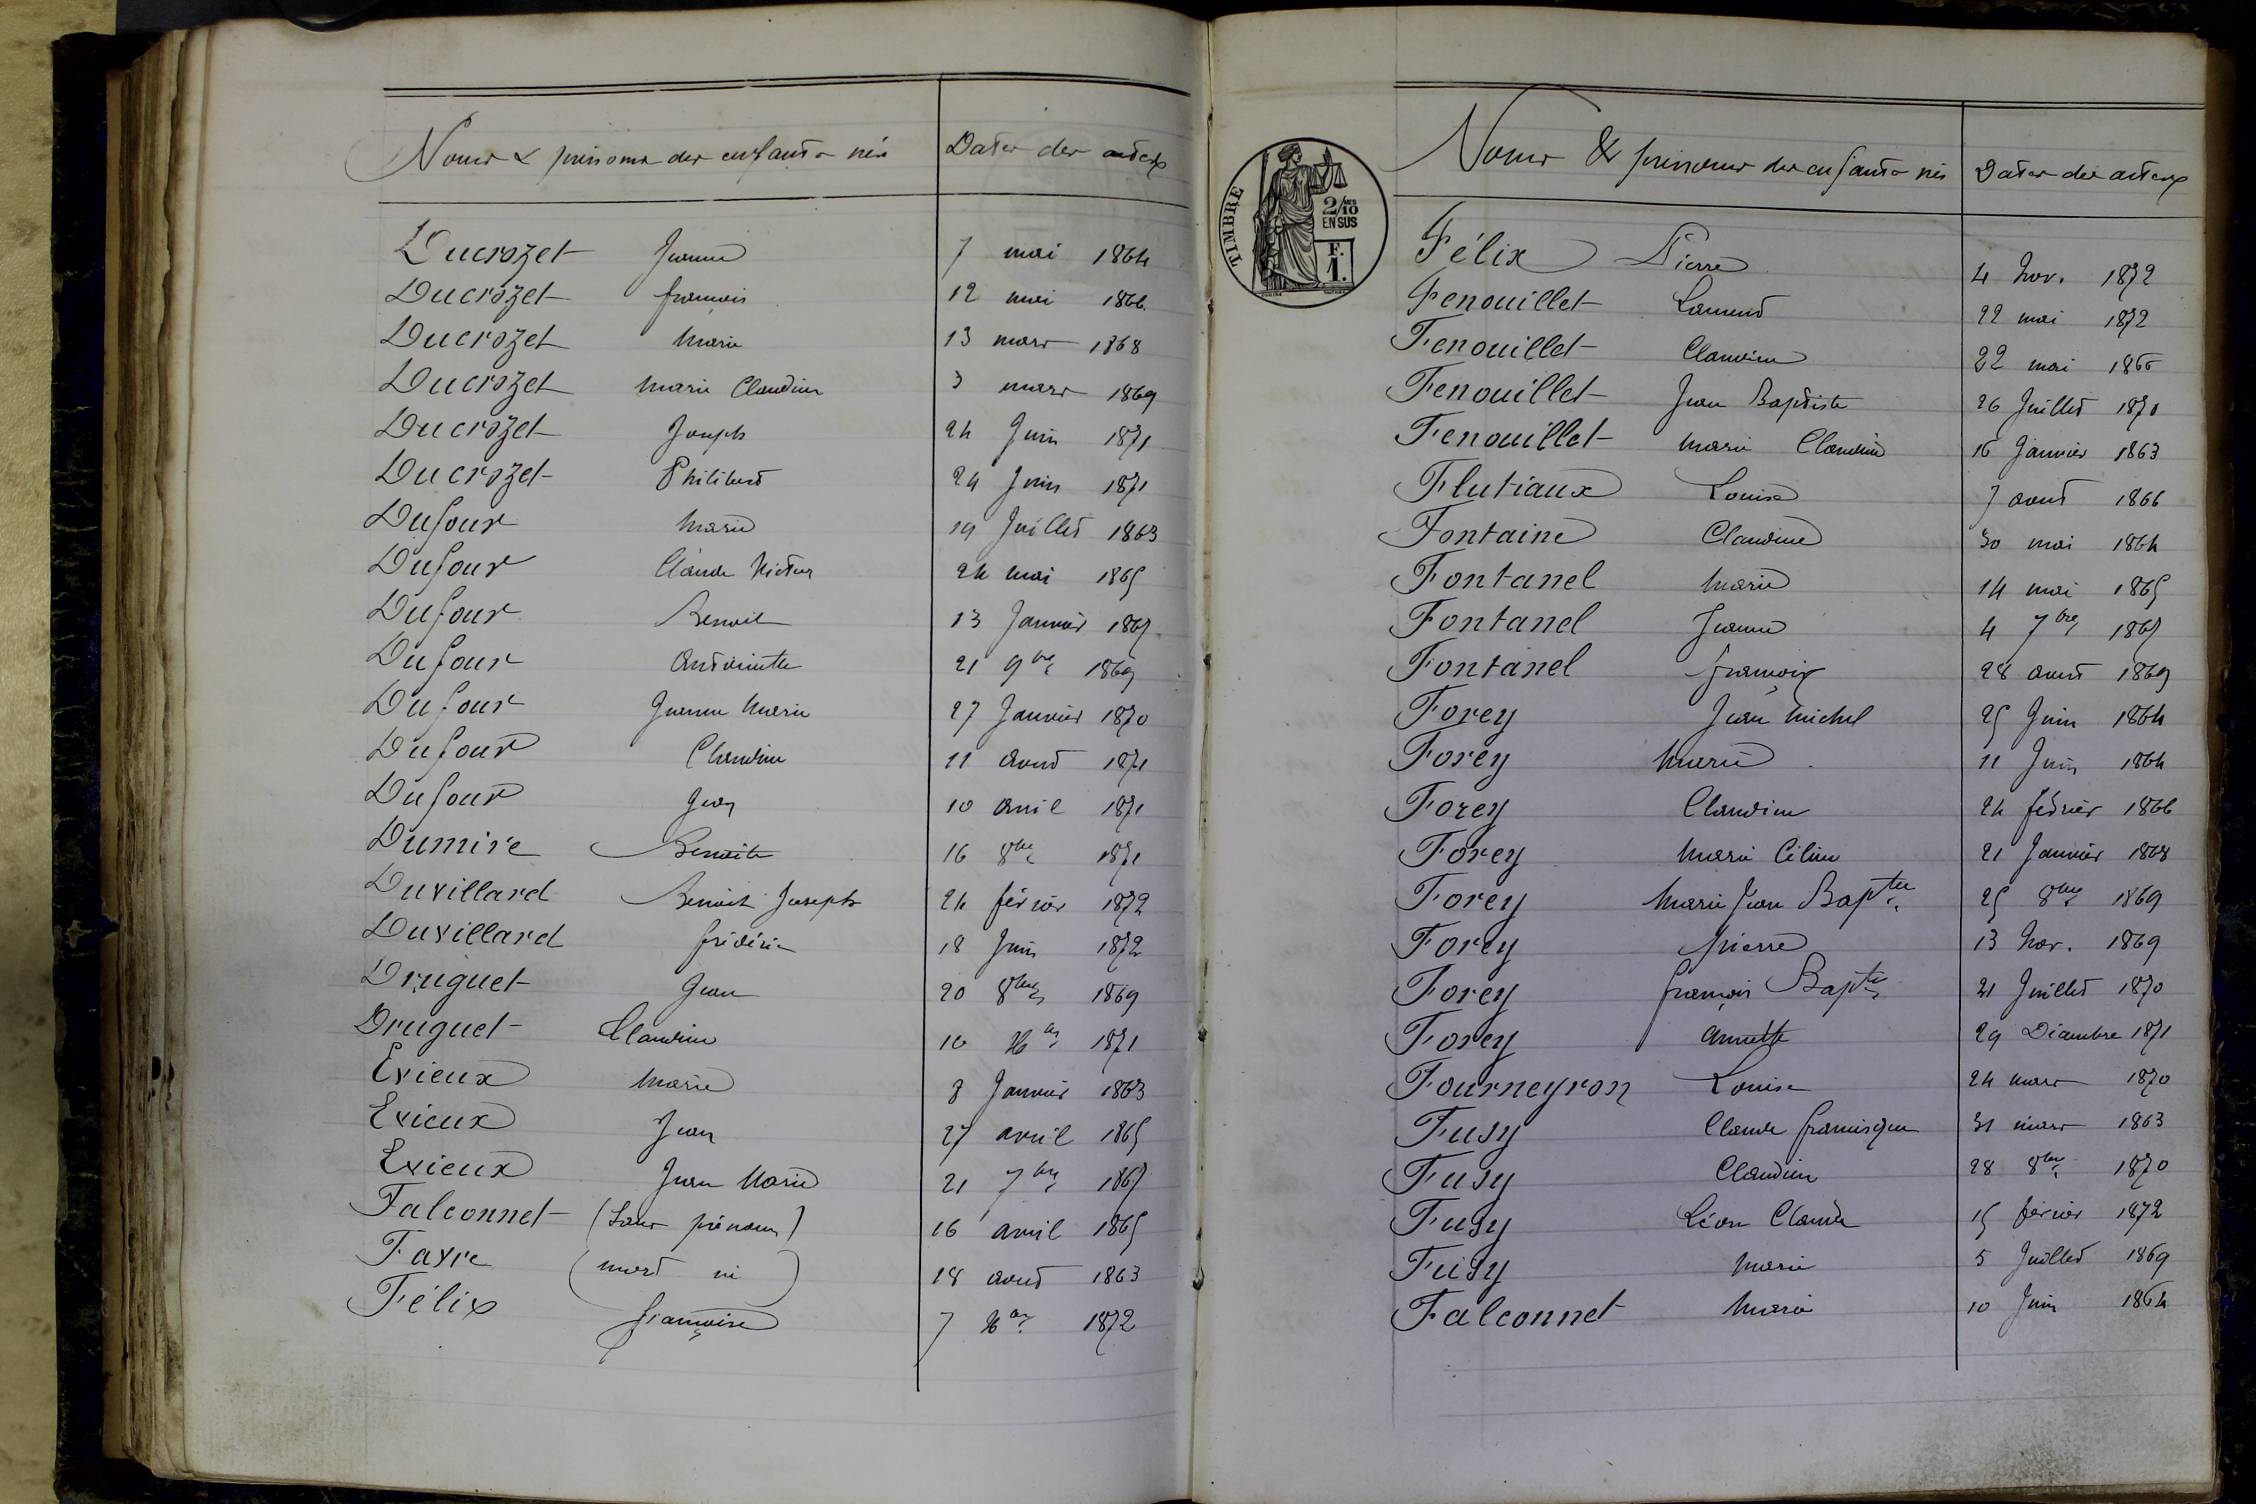 Noms & prénoms des enfants nés Dates des actes
Ducrozet Jeanne 7 mai 1864
Ducrozet françois 12 mai 1866
Ducrozet Marie 13 mars 1868
Ducrozet Marie Claudine 3 mars 1869
Ducrozet Joseph 24 Juin 1871
Ducrozet Philibert 24 Juin 1871
Dufour Marie 19 Juillet 1863
Dufour Claude Victor 24 mai 1865
Dufour Benoit 13 Janvier 1867
Dufour Antoinette 21 9bre 1869
Dufour Jeanne Marie 27 Janvier 1870
Dufour Claudine 11 aout 1871
Dufour Jean 10 avril 1871
Dumire Benoite 16 8bre 1871
Duvillard Benoit Joseph 24 février 1872
Duvillard frédéric 18 Juin 1872
Druguet Jean 20 8bre 1869
Druguet Claudine 10 Xbre 1871
Evieux Marie 8 Janvier 1863
Evieux Jean 27 avril 1865
Evieux Jean Marie 21 7bre 1867
Falconnet (Sans prénoms) 16 avril 1865
Favre (mort né) 18 aout 1863
Félix françoise 7 Xbre 1872
TIMBRE
2/10 EN SUS
F.
1.
Noms & prénoms des enfants nés Dates des actes
Félix Pierre 4 Nov. 1872
Fenouillet Laurent 22 mai 1872
Fenouillet Claudine 22 mai 1866
Fenouillet Jean Baptiste 26 Juillet 1870
Fenouillet Marie Claudine 16 Janvier 1863
Flutiaux Louise 7 aout 1866
Fontaine Claudine 30 mai 1864
Fontanel Marie 14 mai 1865
Fontanel Jeanne 4 7bre 1867
Fontanel françois 28 aout 1869
Forey Jean Michel 25 Juin 1864
Forey Marie 11 Juin 1864
Forey Claudine 24 février 1866
Forey Marie Céline 21 Janvier 1868
Forey Marie Jean Bapte 25 8bre 1869
Forey pierre 13 Nov. 1869
Forey françois Bapte 21 Juillet 1870
Forey Annette 29 Décembre 1871
Fourneyron Louise 24 mars 1870
Fusy Claude françisque 31 mars 1863
Fusy Claudine 28 8bre 1870
Fusy Léon Claude 15 février 1872
Fusy Marie 5 Juillet 1869
Falconnet Marie 10 Juin 1864